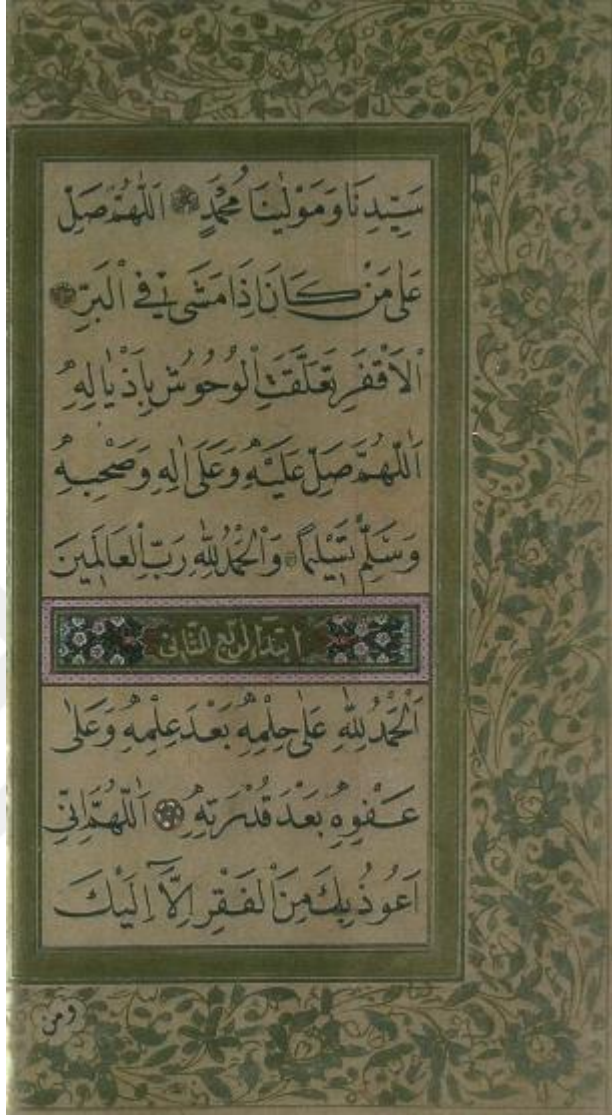 سَيِّدِنَا وَمَوْلٰينَا مُحَمَّدٍ اَللّٰهُمَّ صَلِّ
عَلٰى مَنْ كَانَ اِذَا مَشٰى فِي الْبَرِّ
الْاَقْفَرِ تَعَلَّقَتِ الْوُحُوشُ بِاَذْيَالِهِ
اَللّٰهُمَّ صَلِّ عَلَيْهِ وَعَلٰى اٰلِهِ وَصَحْبِهِ
وَسَلِّمْ تَسْلِيمًا وَالْحَمْدُ لِلّٰهِ رَبِّ الْعَالَمِينَ
ابتداء الربع الثانى
اَلْحَمْدُ لِلّٰهِ عَلٰى حِلْمِهِ بَعْدَ عِلْمِهِ وَعَلٰى
عَفْوِهِ بَعْدَ قُدْرَتِهِ اَللّٰهُمَّ اِنِّي
اَعُوذُ بِكَ مِنَ الْفَقْرِ اِلَّآ اِلَيْكَ
ومن